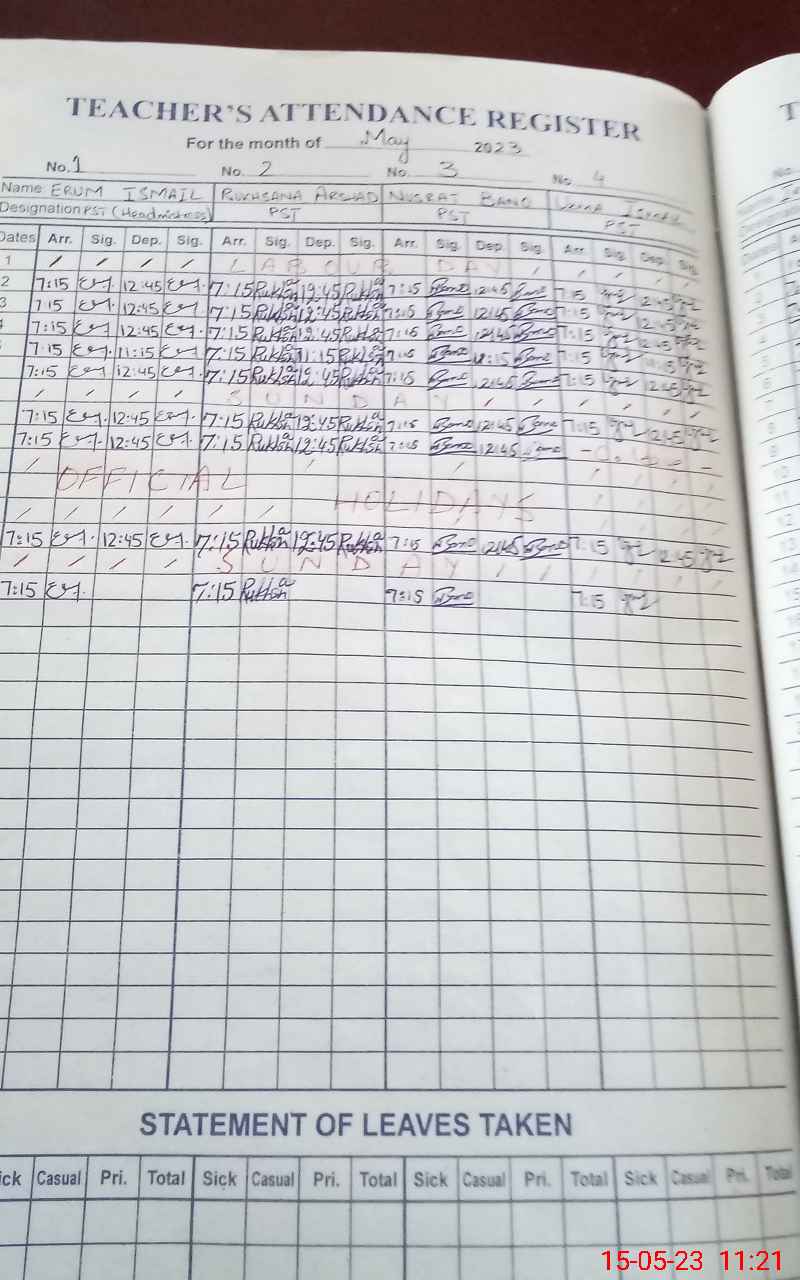 TEACHER'S ATTENDANCE REGISTER
For the month of May 2023
No. 1 No. 2 No. 3 No. 4
Name ERUM ISMAIL RUKHSANA ARSHAD NUSRAT BANO
Designation PST (Headmistress) PST PST PST
Dates Arr. Sig. Dep. Sig. Arr. Sig. Dep. Sig. Arr. Sig. Dep. Sig. Arr. Sig. Dep. Sig.
1 / / / / LABOUR DAY / / / /
2 7:15 12:45 7:15 Rukhsana 12:45 Rukhsana 7:15 Bano 12:45 Bano 7:15 12:45
3 7:15 12:45 7:15 Rukhsana 12:45 Rukhsana 7:15 Bano 12:45 Bano 7:15 12:45
7:15 12:45 7:15 Rukhsana 12:45 Rukhsana 7:15 Bano 12:45 Bano 7:15 12:45
7:15 11:15 7:15 Rukhsana 11:15 Rukhsana 7:15 Bano 11:15 Bano 7:15 11:15
7:15 12:45 7:15 Rukhsana 12:45 Rukhsana 7:15 Bano 12:45 Bano 7:15 12:45
/ / / / SUNDAY / / / / /
7:15 12:45 7:15 Rukhsana 12:45 Rukhsana 7:15 Bano 12:45 Bano 7:15 12:45
7:15 12:45 7:15 Rukhsana 12:45 Rukhsana 7:15 Bano 12:45 Bano
OFFICIAL
HOLIDAYS
7:15 12:45 7:15 Rukhsana 12:45 Rukhsana 7:15 Bano 12:45 Bano 7:15 12:45
/ / / / SUNDAY / / / /
7:15 7:15 Rukhsana 7:15 Bano 7:15
STATEMENT OF LEAVES TAKEN
ick Casual Pri. Total Sick Casual Pri. Total Sick Casual Pri. Total Sick Casual Pri. Total
15-05-23 11:21